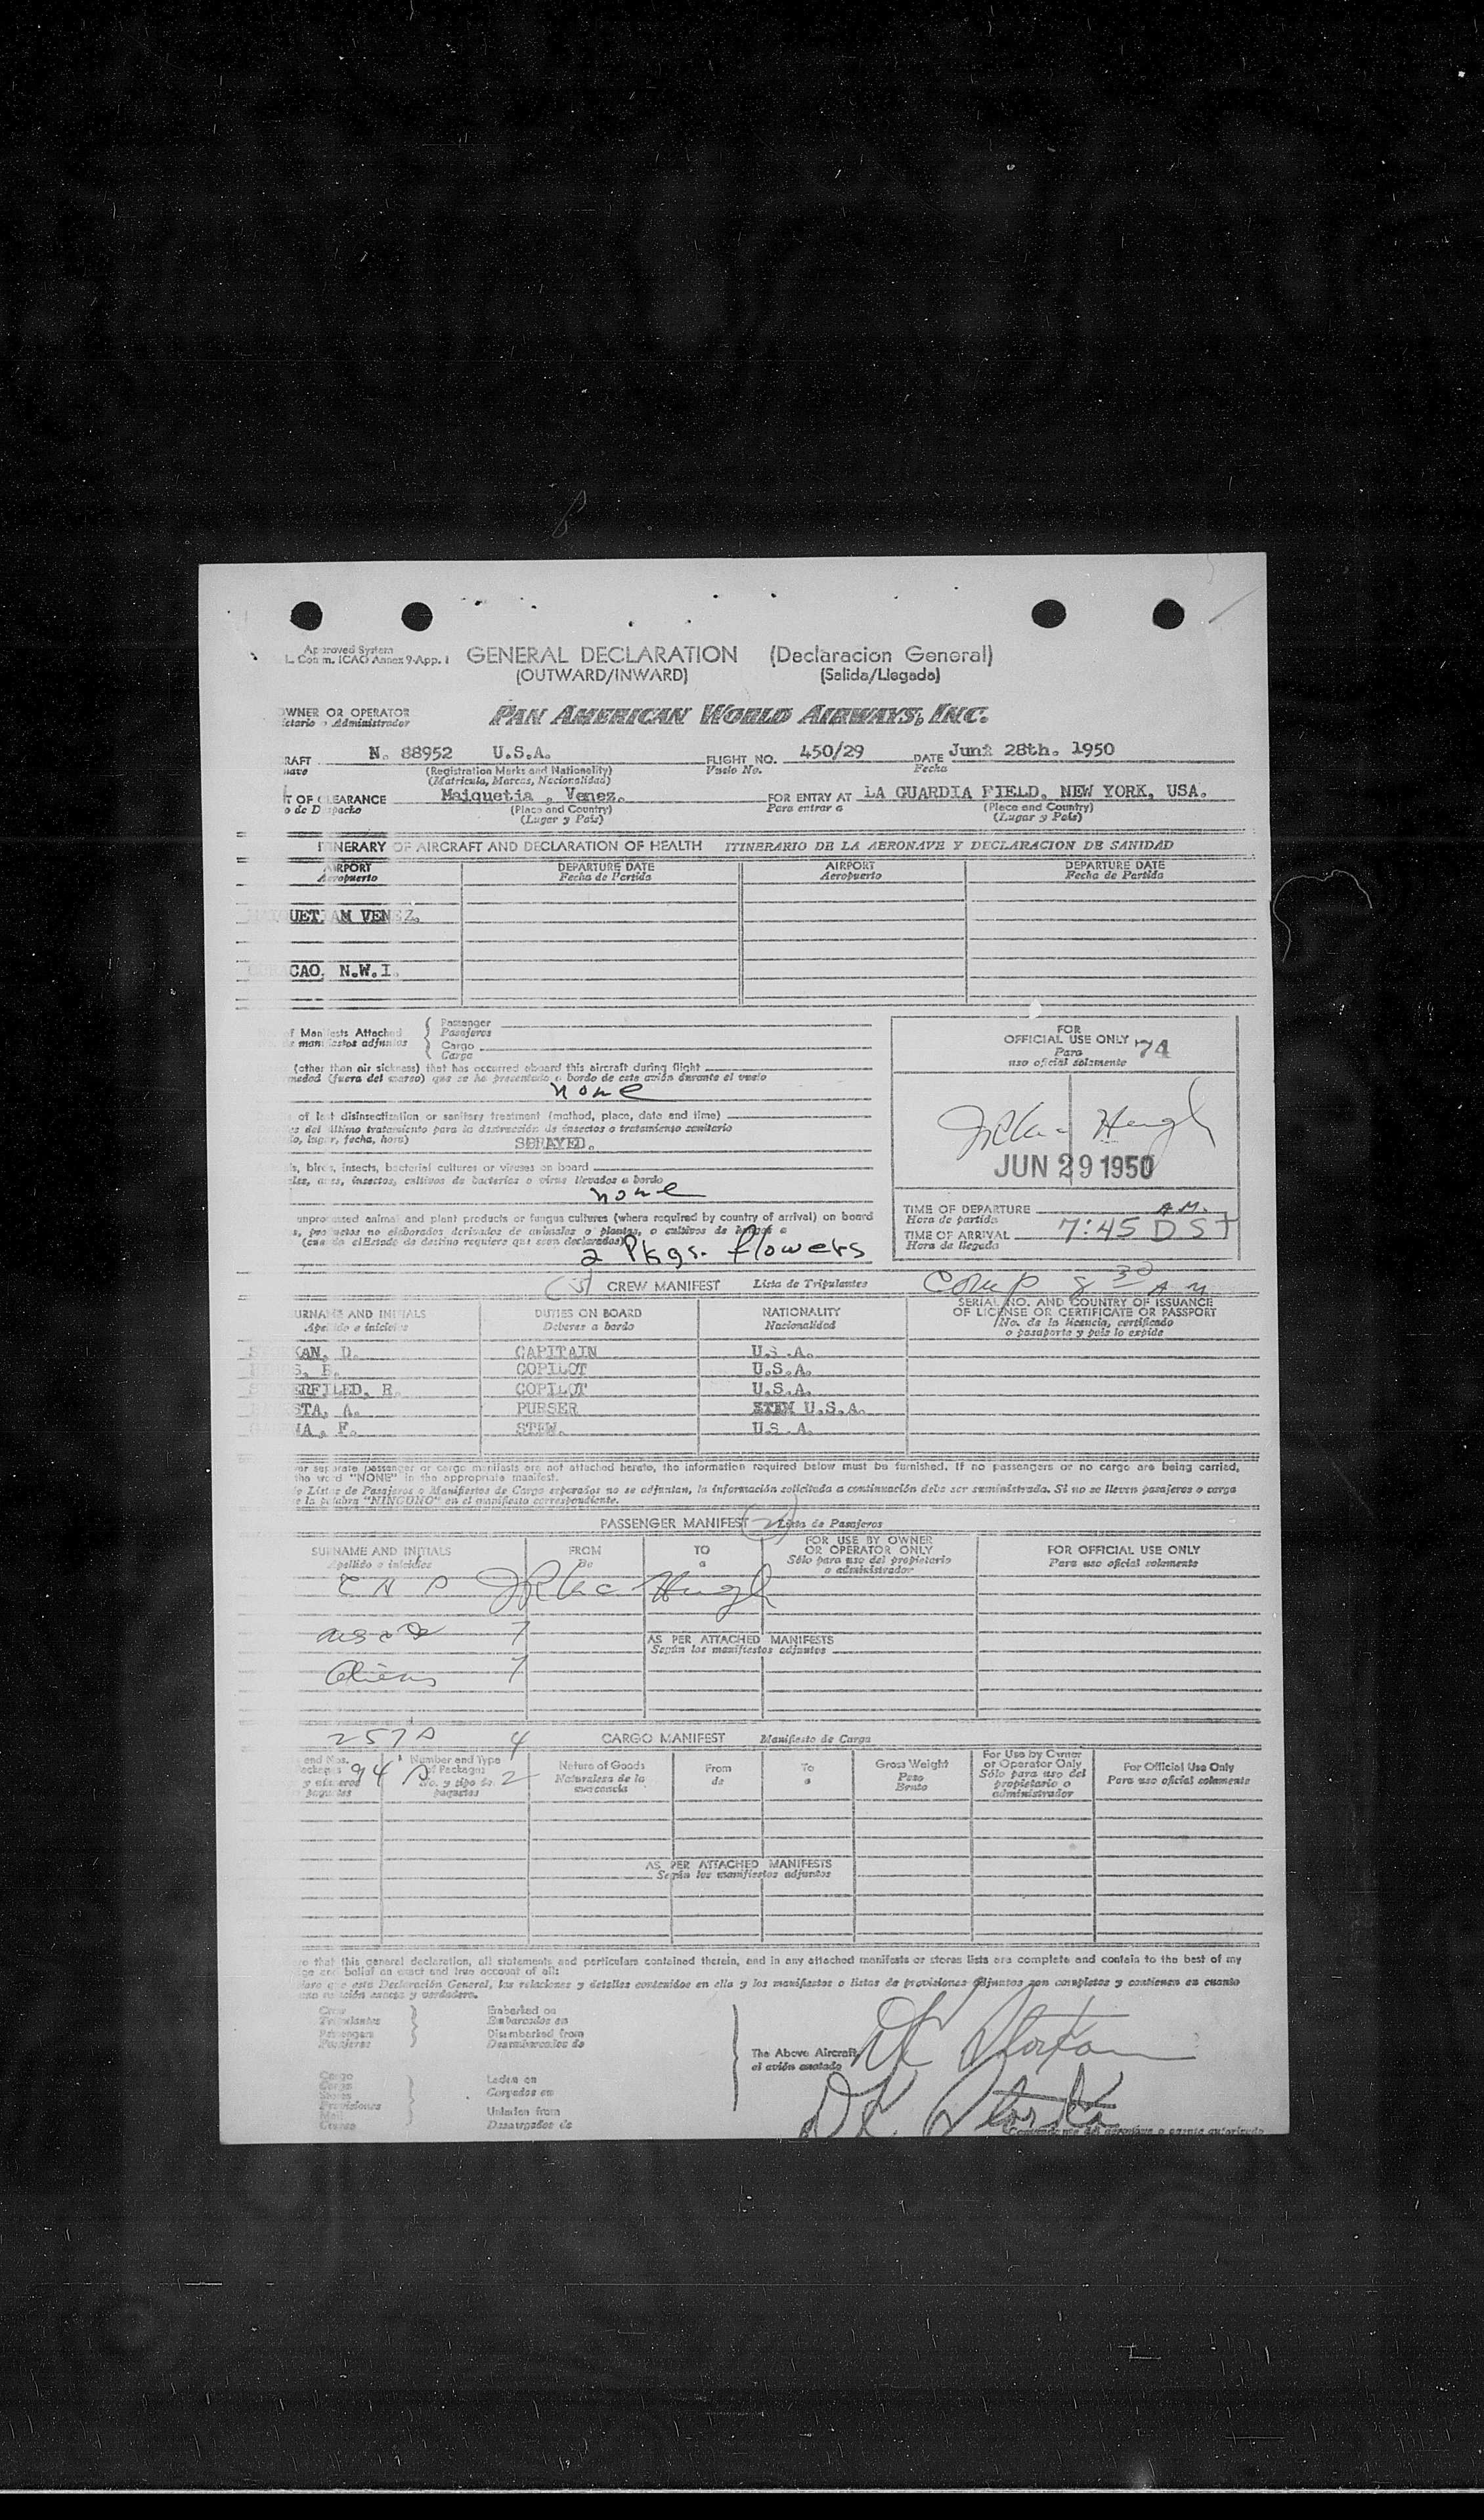 Approved System
L. Comm. ICAO Annex 9-App. 1
GENERAL DECLARATION (Declaracion General)
(OUTWARD/INWARD) (Salida/Llegada)
OWNER OR OPERATOR PAN AMERICAN WORLD AIRWAYS, INC.
o Administrador
N. 88952 U.S.A. FLIGHT NO. 450/29 DATE June 28th. 1950
(Registration Marks and Nationality) Vuelo No. Fecha
(Matricula, Marcas, Nacionalidad)
OF CLEARANCE Maiquetia , Venez. FOR ENTRY AT LA GUARDIA FIELD, NEW YORK, USA.
o de Despacho (Place and Country) Para entrar a (Place and Country)
(Lugar y País) (Lugar y País)
ITINERARY OF AIRCRAFT AND DECLARATION OF HEALTH ITINERARIO DE LA AERONAVE Y DECLARACION DE SANIDAD
AIRPORT DEPARTURE DATE AIRPORT DEPARTURE DATE
Aeropuerto Fecha de Partida Aeropuerto Fecha de Partida
UETIAM VENEZ.
CAO, N.W.I.
of Manifests Attached Passenger
manifiestos adjuntos Pasajeros
Cargo
Carga
FOR
OFFICIAL USE ONLY 74
Para
uso oficial solamente
(other than air sickness) that has occurred aboard this aircraft during flight
medad (fuera del mareo) que se ha presentado a bordo de este avión durante el vuelo
none
of last disinsectization or sanitary treatment (method, place, date and time)
es del último tratamiento para la destrucción de insectos o tratamiento sanitario
lugar, fecha, hora) SPRAYED.
JUN 29 1950
, birds, insects, bacterial cultures or viruses on board
les, aves, insectos, cultivos de bacterias o virus llevados a bordo
none
TIME OF DEPARTURE A.M.
Hora de partida
TIME OF ARRIVAL 7:45 DST
Hora de llegada
unprocessed animal and plant products or fungus cultures (where required by country of arrival) on board
s, productos no elaborados derivados de animales o plantas, o cultivos de hongos a
(cuando el Estado de destino requiere que sean declarados)
2 Pkgs. flowers
(5) CREW MANIFEST Lista de Tripulantes Comp 8 30 A M
SURNAME AND INITIALS DUTIES ON BOARD NATIONALITY SERIAL NO. AND COUNTRY OF ISSUANCE
Apellido e iniciales Deberes a bordo Nacionalidad OF LICENSE OR CERTIFICATE OR PASSPORT
No. de la licencia, certificado
o pasaporte y país lo expide
KAN, D. CAPITAIN U.S.A.
S, B. COPILOT U.S.A.
ERFILED, R. COPILOT U.S.A.
STA, A. PURSER U.S.A.
NA, F. STEW. U.S.A.
separate passenger or cargo manifests are not attached hereto, the information required below must be furnished. If no passengers or no cargo are being carried,
the word "NONE" in the appropriate manifest.
Listas de Pasajeros o Manifiestos de Carga separados no se adjuntan, la información solicitada a continuación debe ser suministrada. Si no se lleven pasajeros o carga
la palabra "NINGUNO" en el manifiesto correspondiente.
PASSENGER MANIFEST Lista de Pasajeros
SURNAME AND INITIALS FROM TO FOR USE BY OWNER FOR OFFICIAL USE ONLY
Apellido e iniciales De a OR OPERATOR ONLY Para uso oficial solamente
Sólo para uso del propietario
o administrador
7
AS PER ATTACHED MANIFESTS
Según los manifiestos adjuntos
Aliens 7
257 4
CARGO MANIFEST Manifiesto de Carga
94 2
and Nos. Number and Type Nature of Goods From To Gross Weight For Use by Owner For Official Use Only
of Packages Naturaleza de la de a Peso or Operator Only Para uso oficial solamente
y números No. y tipo de mercancía Bruto Sólo para uso del
paquetes propietario o
administrador
AS PER ATTACHED MANIFESTS
Según los manifiestos adjuntos
that this general declaration, all statements and particulars contained therein, and in any attached manifests or stores lists are complete and contain to the best of my
and belief an exact and true account of all:
que esta Declaración General, las relaciones y detalles contenidos en ella y los manifiestos o listas de provisiones adjuntos son completos y contienen en cuanto
relación exacta y verdadera.
Crew Embarked on
Tripulantes Embarcados en
Passengers Disembarked from
Pasajeros Desembarcados de
The Above Aircraft
el avión anotado
Cargo Laden on
Carga Cargados en
Stores
Provisiones
Mail Unladen from
Correo Descargados de
DK Storkan
DK. Storkan